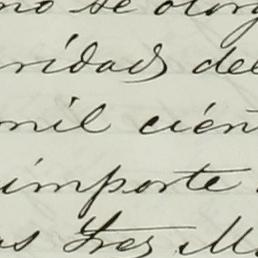 no se otorg
ridad del
mil cien
importe
as tres M